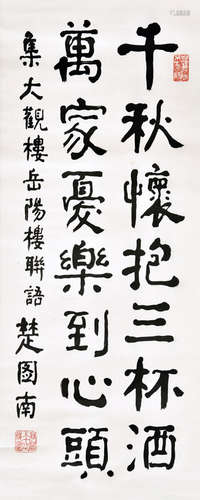 千秋懷抱三杯酒
萬家憂樂到心頭
集大觀樓岳陽樓聯語 楚圖南